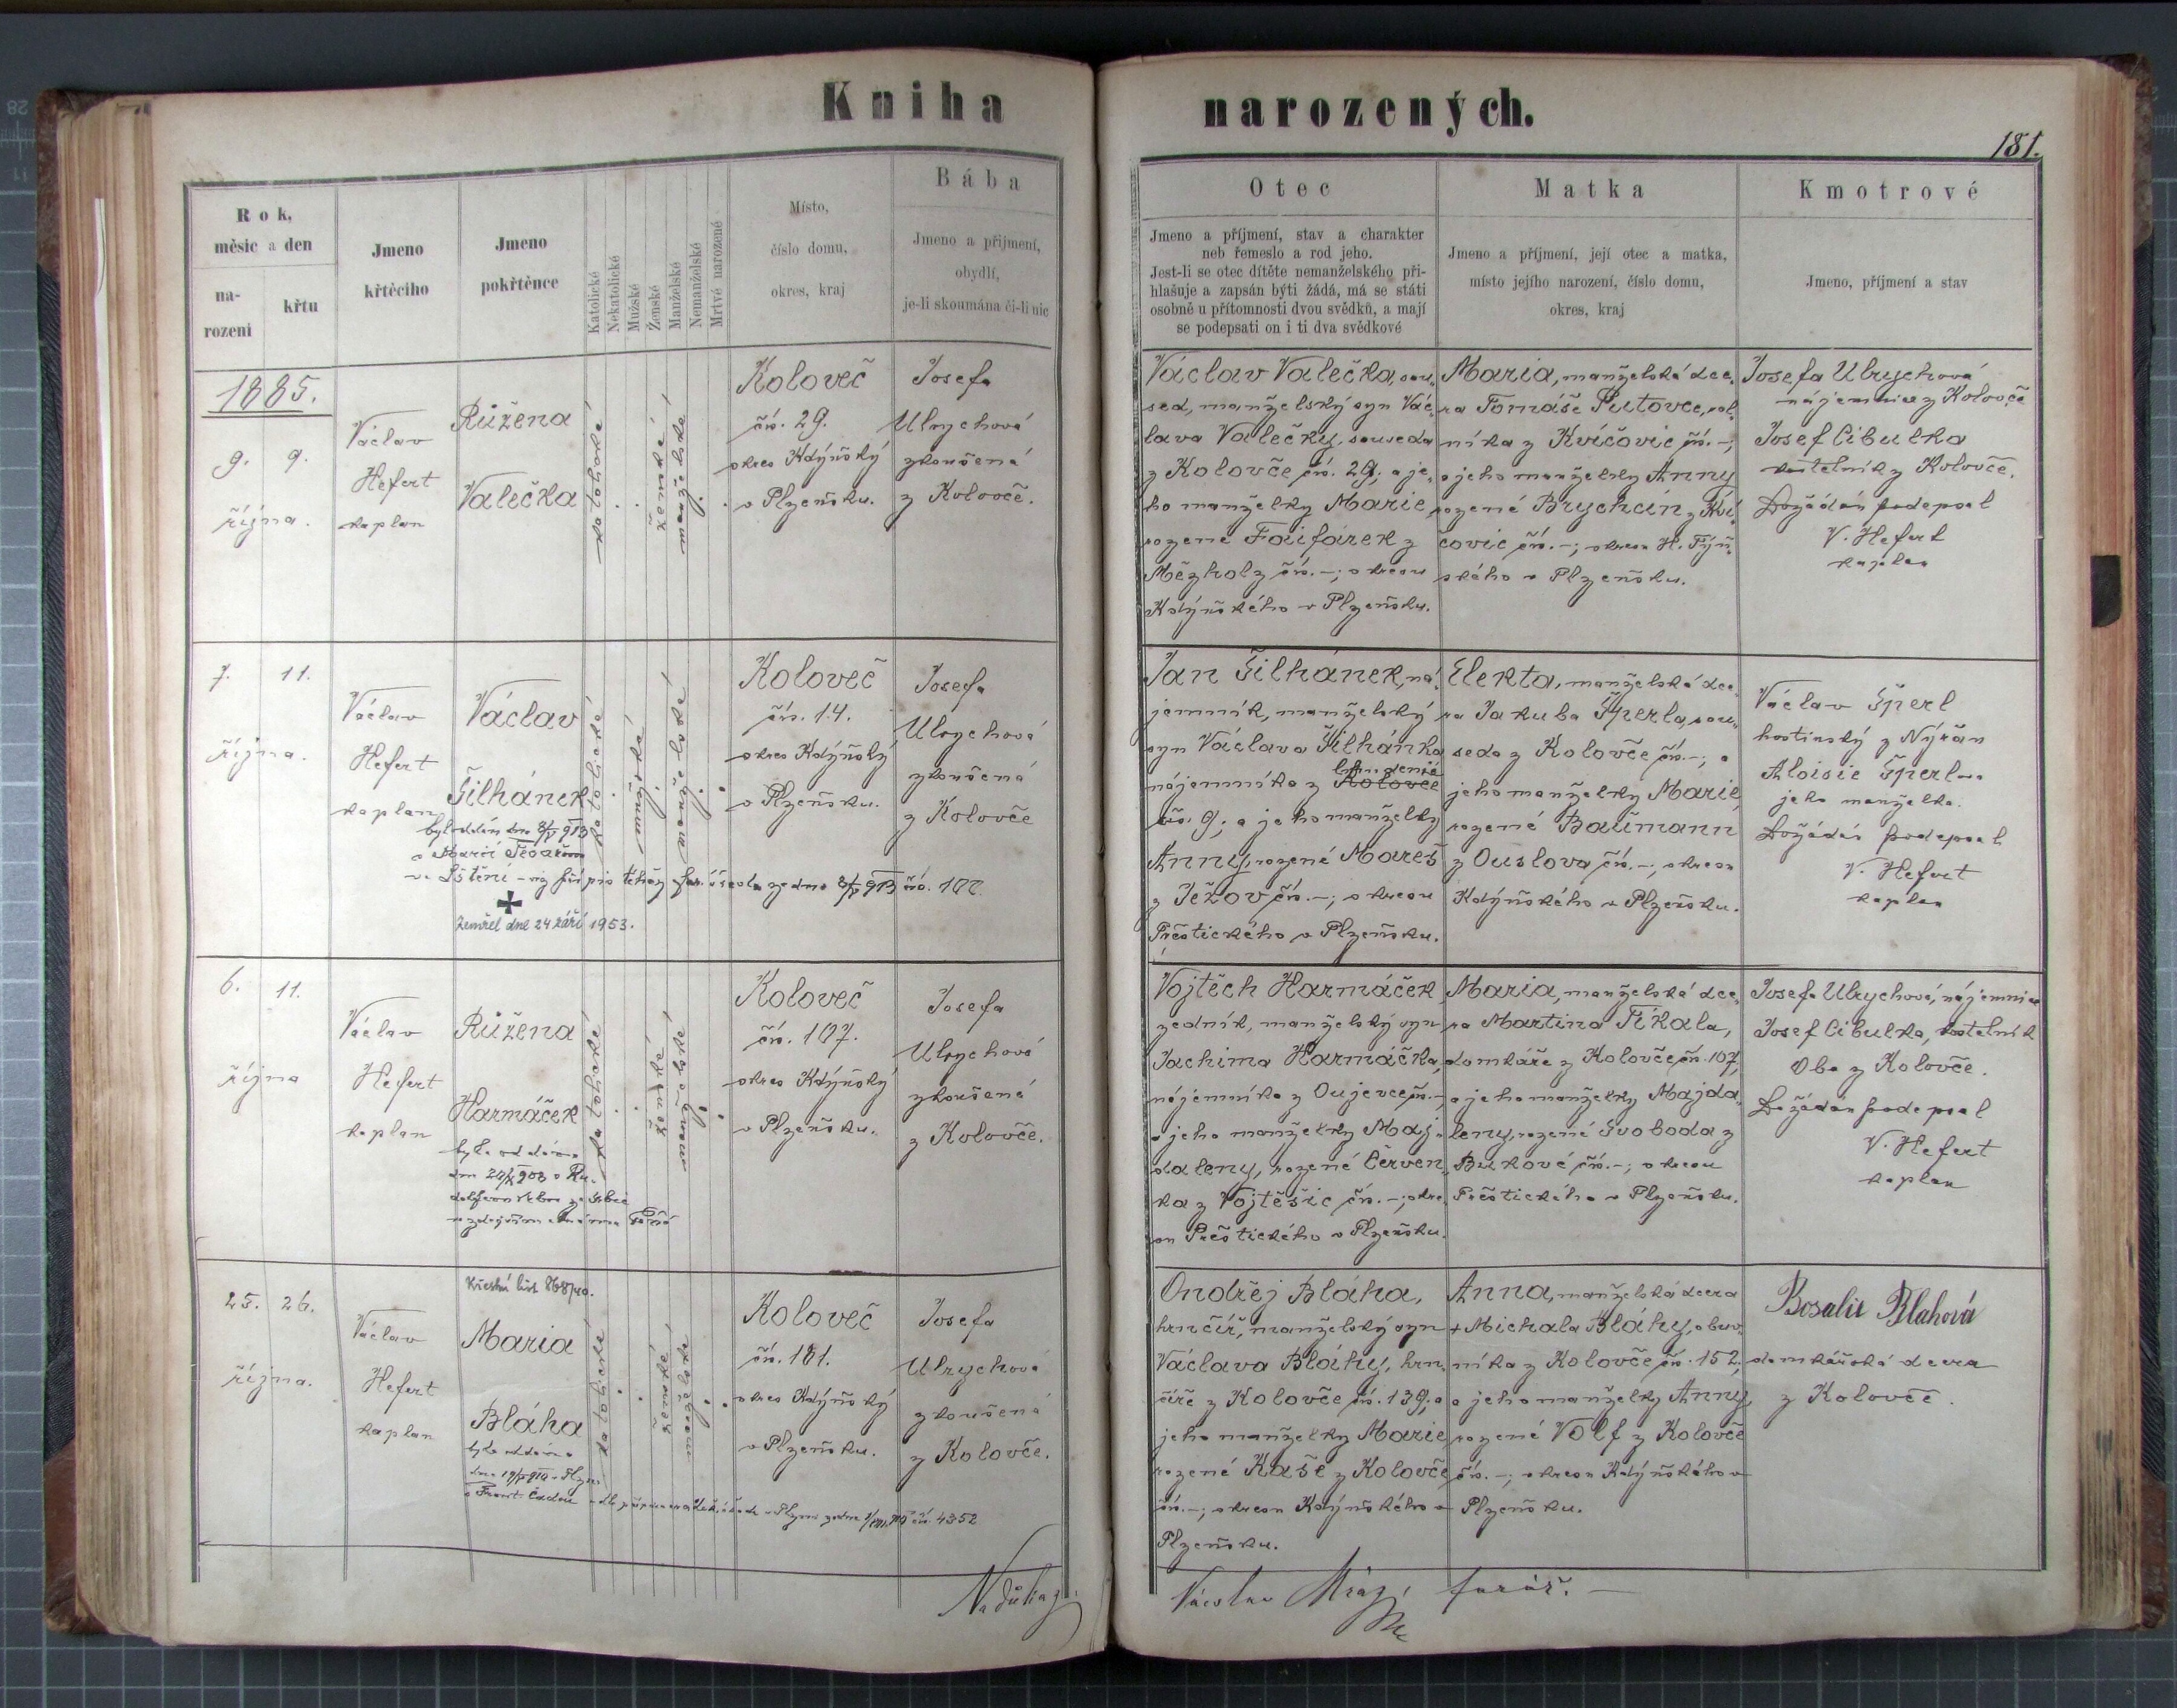 Kniha narozených.
181.
Rok,
měsíc a den
na-
rození
křtu
Jmeno
křtěcího
Jmeno
pokřtěnce
Katolické
Nekatolické
Mužské
Ženské
Manželské
Nemanželské
Mrtvě narozené
Místo,
číslo domu,
okres, kraj
Bába
Jmeno a přijmení,
obydlí,
je-li skoumána či-li nic
Otec
Jmeno a příjmení, stav a charakter
neb řemeslo a rod jeho.
Jest-li se otec dítěte nemanželského při-
hlašuje a zapsán býti žádá, má se státi
osobně u přítomnosti dvou svědků, a mají
se podepsati on i ti dva svědkové
Matka
Jmeno a příjmení, její otec a matka,
místo jejího narození, číslo domu,
okres, kraj
Kmotrové
Jmeno, příjmení a stav
1885.
9. 9.
října.
Václav
Hefert
kaplan
Růžena
Valečka
katolické
ženské
manželské
Koloveč
čís. 29.
okres Kdýňský
v Plzeňsku.
Josefa
Ulrychová
zkoušená
z Kolovče.
Václav Valečka, sou-
sed, manželský syn Vác-
lava Valečky, souseda
z Kolovče čís. 29; a je-
ho manželky Marie,
rozené Faifárek z
Mězholz čís. –; okresu
Kdýňského v Plzeňsku.
Maria, manželská dce-
ra Tomáše Putovce, rol-
níka z Kvíčovic čís. –;
a jeho manželky Anny
rozené Brychcín z Kví-
čovic čís. –; okresu H. Týn-
ského v Plzeňsku.
Josefa Ulrychová
nájemnice z Kolovče
Josef Cibulka
kostelník z Kolovče.
Dožádán podepsal
V. Hefert
kaplan
7. 11.
října.
Václav
Hefert
kaplan
Václav
Šilhánek
byl oddán dne 8/V 913
s Marií
ve Lštění – viz přípis téhož far. úřadu ze dne 8/V 913 čís. 102.
Zemřel dne 24 září 1953.
katolické
mužské
manželské
Koloveč
čís. 14.
okres Kdýňský
v Plzeňsku.
Josefa
Ulrychová
zkoušená
z Kolovče
Jan Šilhánek, ná-
jemník, manželský
syn Václava Šilhánka
nájemníka z Kolovče
čís. 9; a jeho manželky
Anny, rozené Mareš
z Ježov čís. –; okresu
Přeštického v Plzeňsku.
Elekta, manželská dce-
ra Jakuba Šperla, sou-
seda z Kolovče čís. –; a
jeho manželky Marie,
rozené Baumann
z Ouslova čís. –; okresu
Kdýňského v Plzeňsku.
Václav Šperl
hostinský z Nýřan
Aloisie Šperl
jeho manželka.
Dožádán podepsal
V. Hefert
kaplan
6. 11.
října
Václav
Hefert
kaplan
Růžena
Harmáček
byla oddána
katolické
ženské
manželské
Koloveč
čís. 107.
okres Kdýňský
v Plzeňsku.
Josefa
Ulrychová
zkoušená
z Kolovče.
Vojtěch Harmáček
zedník, manželský syn
Jachima Harmáčka,
nájemníka z Oujezce čís. –,
a jeho manželky Maj-
daleny, rozené Červen-
ka z Vojtěšic čís. –; okre-
su Přeštického v Plzeňsku.
Maria, manželská dce-
ra Martina Tikala,
domkáře z Kolovče čís. 107,
a jeho manželky Majda-
leny, rozené Svoboda z
Bukové čís. –; okresu
Přeštického v Plzeňsku.
Josefa Ulrychová, nájemnice
Josef Cibulka, kostelník
Oba z Kolovče.
Dožádán podepsal
V. Hefert
kaplan
25. 26.
října.
Václav
Hefert
kaplan
Křestní list 868/40.
Maria
Bláha
byla oddána
katolické
ženské
manželské
Koloveč
čís. 181.
okres Kdýňský
v Plzeňsku.
Josefa
Ulrychová
zkoušená
z Kolovče.
Ondřej Bláha,
hrnčíř, manželský syn
Václava Bláhy, hrn-
číře z Kolovče čís. 139; a
jeho manželky Marie
rozené Kaše z Kolovče
čís. –; okresu Kdýňského v
Plzeňsku.
Anna, manželská dcera
+ Michala Bláhy, obuv-
níka z Kolovče čís. 152;
a jeho manželky Anny,
rozené Volf z Kolovče
čís. –; okresu Kdýňského v
Plzeňsku.
Rosalie Blahová
domkářská dcera
z Kolovče.
Václav farář.